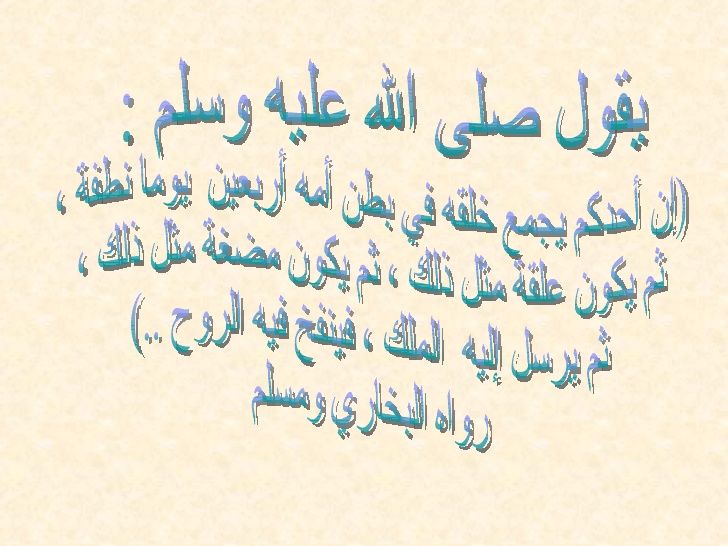 يقول صلى الله عليه وسلم :
(إن أحدكم يجمع خلقه في بطن أمه أربعين يوما نطفة ،
ثم يكون علقة مثل ذلك ، ثم يكون مضغة مثل ذلك ،
ثم يرسل إليه الملك ، فينفخ فيه الروح ..)
رواه البخاري ومسلم